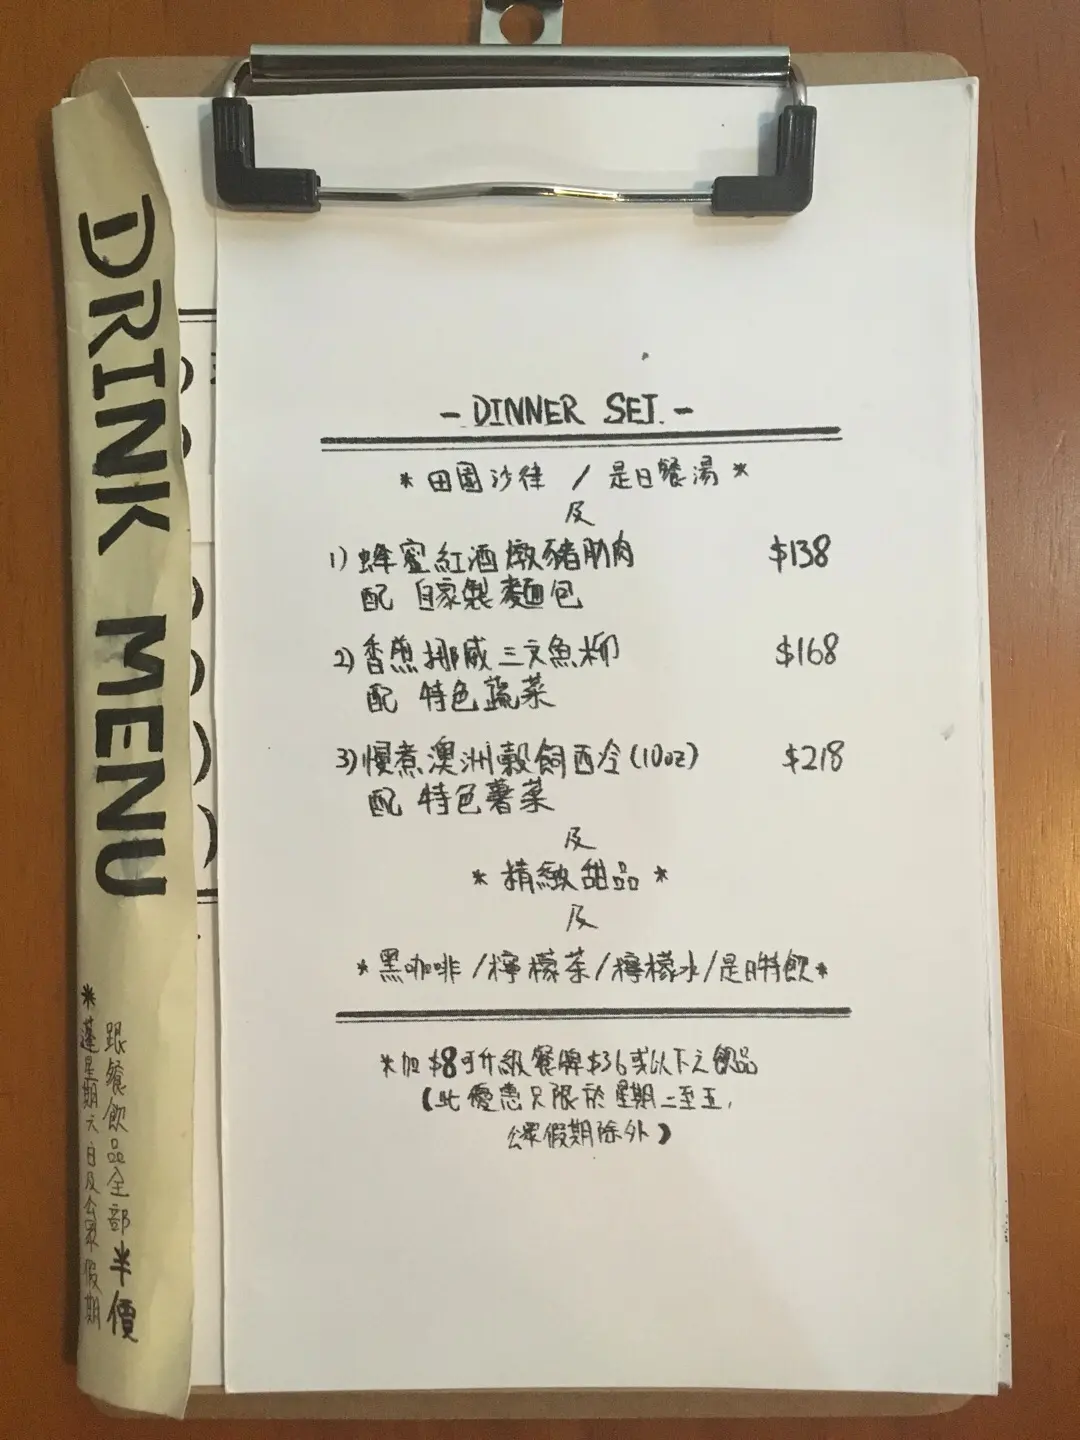 DRINK MENU
*逢星期六日及公眾假期
跟餐飲品全部半價
- DINNER SET. -
*田園沙律 / 是日餐湯*
及
1)蜂蜜紅酒燉豬肋肉 $138
配 自家製麵包
2)香煎挪威三文魚柳 $168
配 特色蔬菜
3)慢煮澳洲穀飼西冷(10oz) $218
配 特色薯菜
及
*精緻甜品*
及
*黑咖啡/檸檬茶/檸檬水/是日特飲*
*加$8可升級餐牌$36或以下之飲品
(此優惠只限於星期一至五,
公眾假期除外)